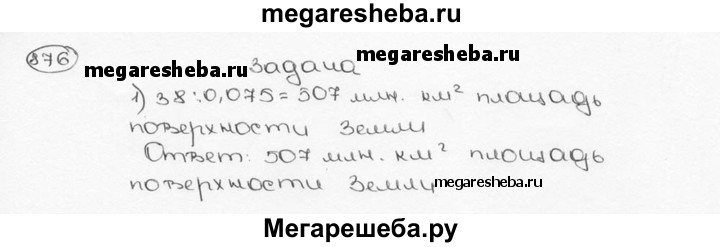 megaresheba.ru
876
megaresheba.ru Задача megaresheba.ru
1) 38:0,075=507 млн. км² площадь
поверхности Земли
Ответ: 507 млн. км² площадь
поверхности Земли megaresheba.ru
Мегарешеба.ру